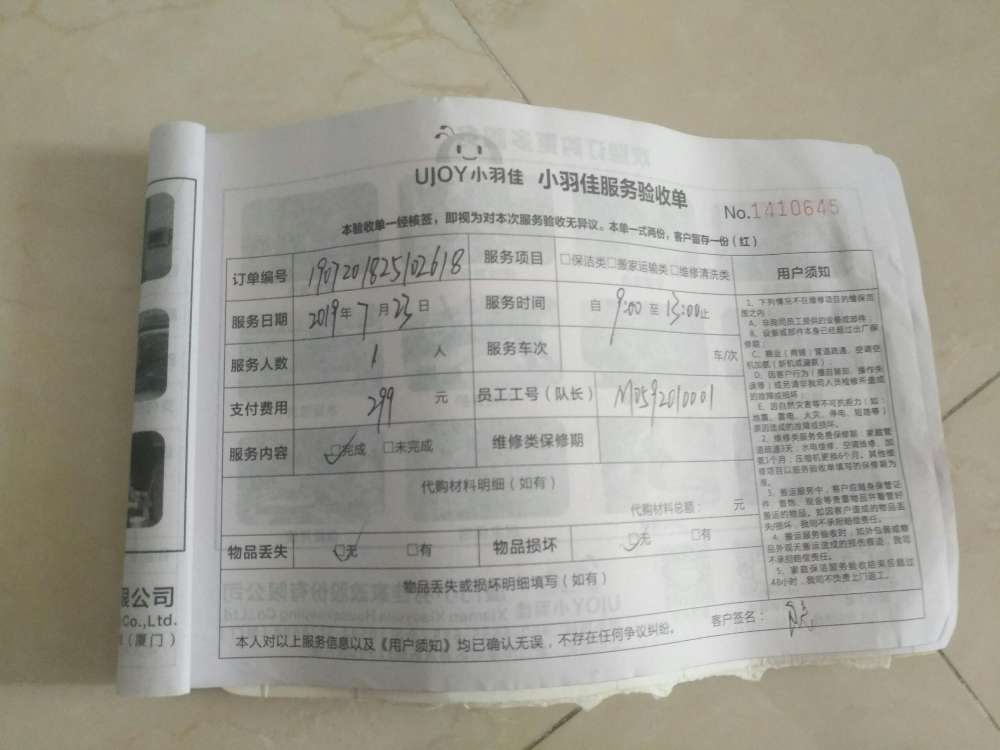 UJOY小羽佳 小羽佳服务验收单
No.1410645
本验收单一经核签，即视为对本次服务验收无异议。本单一式两份，客户暂存一份（红）
订单编号 1907201825102618 服务项目 □保洁类□搬家运输类□维修清洗类 用户须知
服务日期 2019年7月23日 服务时间 自9:00至13:00止
服务人数 1人 服务车次 车/次
支付费用 299元 员工工号（队长） M0592010001
服务内容 □完成 □未完成 维修类保修期
代购材料明细（如有）
代购材料总额： 元
物品丢失 □无 □有 物品损坏 □无 □有
物品丢失或损坏明细填写（如有）
本人对以上服务信息以及《用户须知》均已确认无误，不存在任何争议纠纷。 客户签名：
1、下列情况不在维修项目的维保范
围之内：
A、非我司员工提供的设备或部件；
B、设备或部件本身已经超过出厂保
修期；
C、商业（商铺）管道疏通、空调空
机加氨（新机或漏氨）
D、因客户行为（擅自装卸、操作失
误等）或另请非我司人员检修所造成
的故障或损坏；
E、因自然灾害等不可抗拒力（如：
地震、雷电、火灾、停电、短路等）
原因造成的故障或损坏。
2、维修类服务免费保修期：家庭管
道疏通3天；水电维修、空调维修、加
氨1个月；压缩机更换6个月。其他维
修项目以服务验收单填写的保修期为
准。
3、搬运服务中，客户应随身保管证
件、首饰、现金等贵重物品并看管好
搬运的物品。如因客户造成的物品丢
失/损坏，我司不承担赔偿责任。
4、搬运服务验收时，如外包装或物
品外观无搬运造成的损伤痕迹，我司
不承担赔偿责任。
5、家庭保洁服务验收结束后超过
48小时，我司不负责上门返工。
限公司
Co.,Ltd.
（厦门）